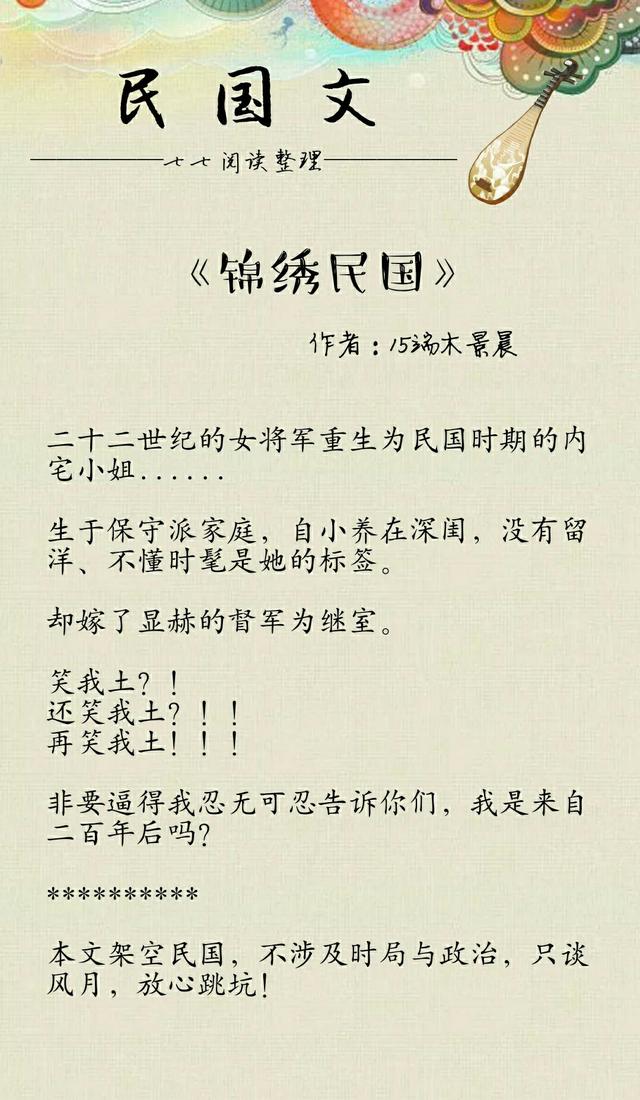 民国文
七七阅读整理
《锦绣民国》
作者：15端木景晨
二十二世纪的女将军重生为民国时期的内
宅小姐......
生于保守派家庭，自小养在深闺，没有留
洋、不懂时髦是她的标签。
却嫁了显赫的督军为继室。
笑我土？！
还笑我土？！！
再笑我土！！！
非要逼得我忍无可忍告诉你们，我是来自
二百年后吗？
**********
本文架空民国，不涉及时局与政治，只谈
风月，放心跳坑！